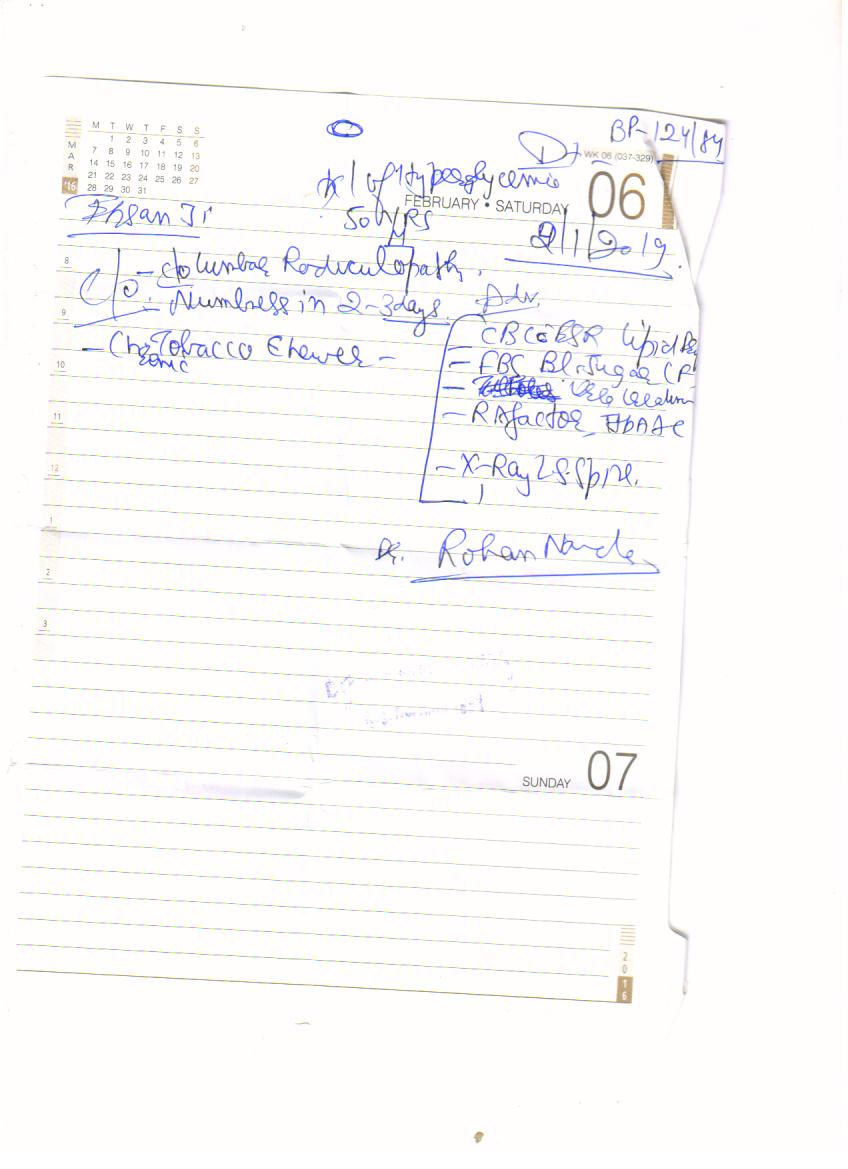 BP-124/84
M T W T F S S
1 2 3 4 5 6
7 8 9 10 11 12 13
14 15 16 17 18 19 20
21 22 23 24 25 26 27
28 29 30 31
MAR
'16
WK 06 (037-329)
K/ of Hyperglycemic
FEBRUARY • SATURDAY 06
Ehsan Ji
50 YRS
M
2/1/2019.
8
C/o - Lumbar Radiculopathy.
- Numbness in 2-3 days.
Adv.
9
CBC ESR Lipid
- Chronic Tobacco Chewer -
- FBS Bl. Sugar (F
10
- Urea
- RA factor, HbA1c
11
- X-Ray LS Spine.
12
1
Dr. Rohan
2
3
SUNDAY 07
2016